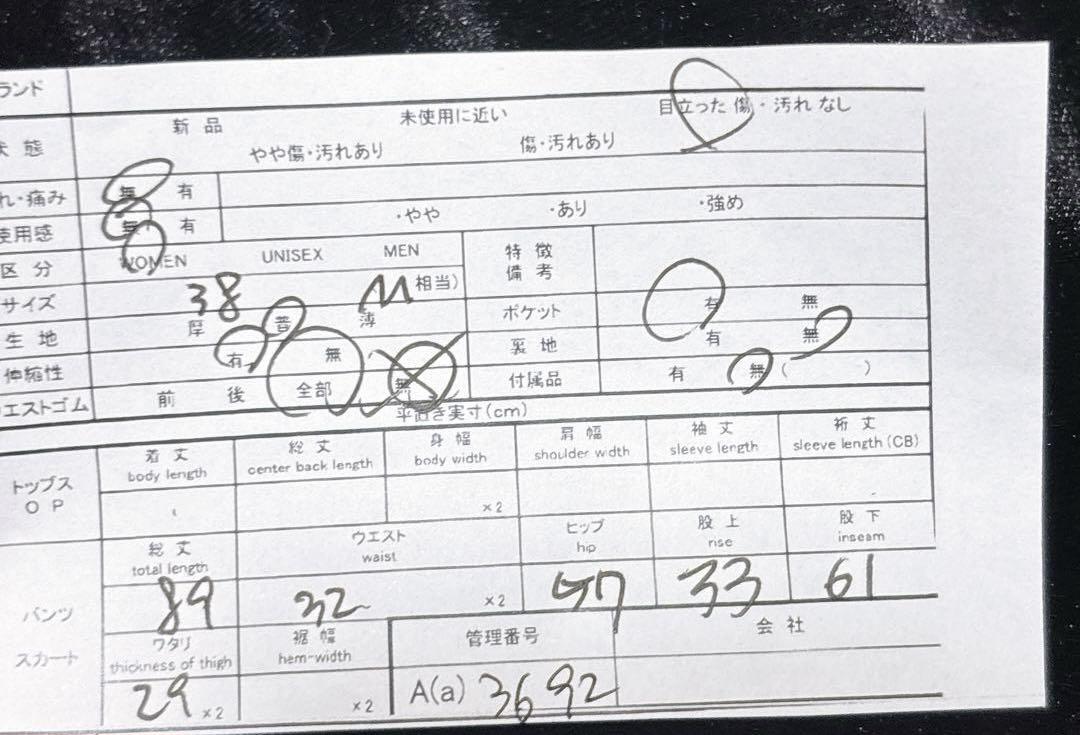 ランド
新品 未使用に近い 目立った傷・汚れなし
状態 やや傷・汚れあり 傷・汚れあり
れ・痛み 無 有
使用感 無 有 ・やや ・あり ・強め
区分 WOMEN UNISEX MEN 特徴 備考
サイズ 38 M 相当)
ポケット 有 無
生地 厚 普 薄
裏地 有 無
伸縮性 有 無
付属品 有 無 ( )
エストゴム 前 後 全部 無
平置き実寸(cm)
トップス OP
着丈 総丈 身幅 肩幅 袖丈 裄丈
body length center back length body width shoulder wdth sleeve length sleeve length (CB)
×2
総丈 ウエスト ヒップ 股上 股下
total length waist hip rise inseam
パンツ 89 32 ×2 47 33 61
スカート
ワタリ 裾幅 管理番号 会社
thickness of thigh hem-width
29 ×2 ×2 A(a) 3692